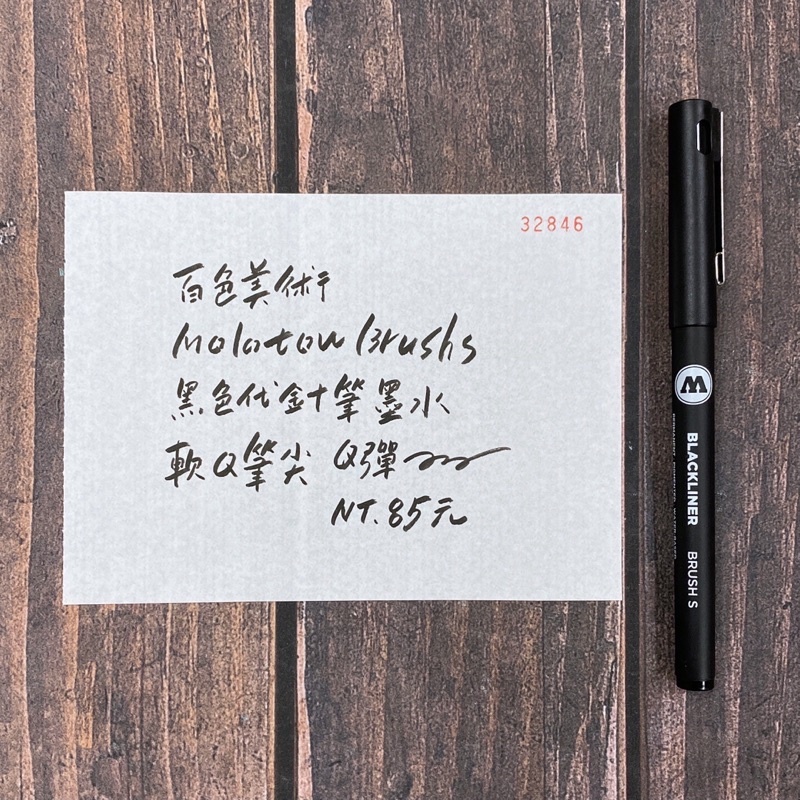 32846
百色美術
Molotow Brushs
黑色代針筆墨水
軟Q筆尖 Q彈
NT.85元
M
BLACKLINER BRUSH S